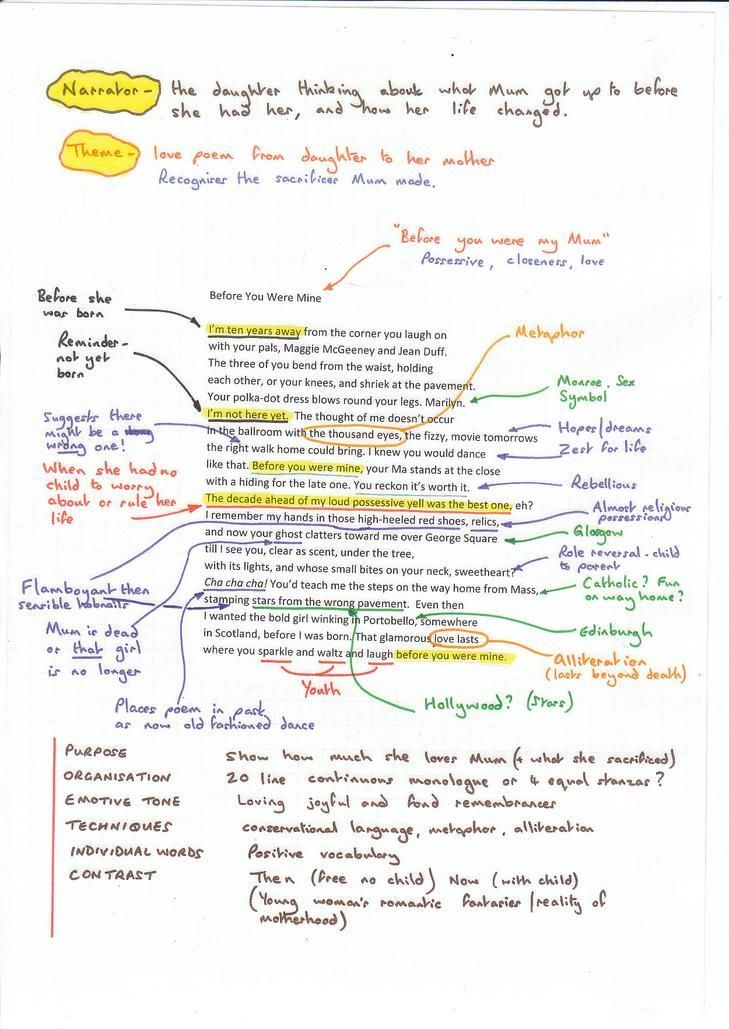 Narrator - the daughter thinking about what Mum got up to before
she had her, and how her life changed.
Theme - love poem from daughter to her mother
Recognises the sacrifices Mum made.
"Before you were my Mum"
Possessive, closeness, love
Before You Were Mine
Before she
was born
Reminder-
not yet
born
Suggests there
might be a
wrong one!
When she had no
child to worry
about or rule her
life
Flamboyant then
sensible hobnails
Mum is dead
or that girl
is no longer
Places poem in past
as now old fashioned dance
I'm ten years away from the corner you laugh on
with your pals, Maggie McGeeney and Jean Duff.
The three of you bend from the waist, holding
each other, or your knees, and shriek at the pavement.
Your polka-dot dress blows round your legs. Marilyn.
I'm not here yet. The thought of me doesn't occur
in the ballroom with the thousand eyes, the fizzy, movie tomorrows
the right walk home could bring. I knew you would dance
like that. Before you were mine, your Ma stands at the close
with a hiding for the late one. You reckon it's worth it.
The decade ahead of my loud possessive yell was the best one, eh?
I remember my hands in those high-heeled red shoes, relics,
and now your ghost clatters toward me over George Square
till I see you, clear as scent, under the tree,
with its lights, and whose small bites on your neck, sweetheart?
Cha cha cha! You'd teach me the steps on the way home from Mass,
stamping stars from the wrong pavement. Even then
I wanted the bold girl winking in Portobello, somewhere
in Scotland, before I was born. That glamorous love lasts
where you sparkle and waltz and laugh before you were mine.
Metaphor
Monroe. Sex
Symbol
Hopes/dreams
Zest for life
Rebellious
Almost religious
possessions
Glasgow
Role reversal - child
to parent
Catholic? Fun
on way home?
Edinburgh
Alliteration
(lasts beyond death)
Youth
Hollywood? (Stars)
PURPOSE show how much she loves Mum (+ what she sacrificed)
ORGANISATION 20 line continuous monologue or 4 equal stanzas?
EMOTIVE TONE Loving joyful and fond remembrances
TECHNIQUES conservational language, metaphor, alliteration
INDIVIDUAL WORDS Positive vocabulary
CONTRAST Then (free no child) Now (with child)
(Young woman's romantic fantasies / reality of
motherhood)